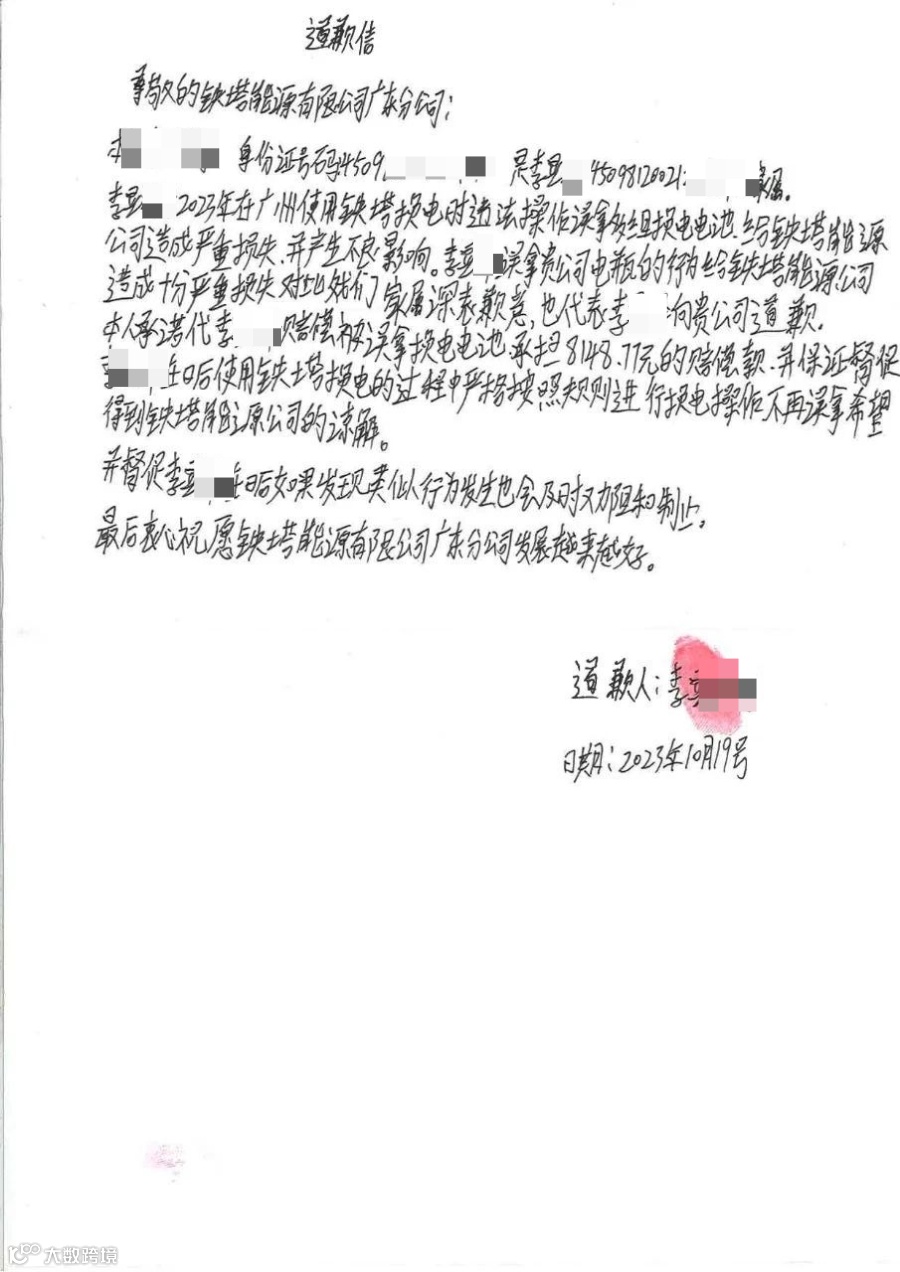 道歉信
尊敬的铁塔能源有限公司广东分公司：
本 身份证号码4509 是李 45098120021 家属。
李 2023年在广州使用铁塔换电时违法操作误拿多组换电电池.给铁塔能源
公司造成严重损失.并产生不良影响。李 误拿贵公司电瓶的行为给铁塔能源公司
造成十分严重损失.对此我们家属深表歉意,也代表李 向贵公司道歉.
本人承诺代李 赔偿被误拿换电电池.承担8148.77元的赔偿款.并保证督促
在日后使用铁塔换电的过程中严格按照规则进行换电操作不再误拿希望
得到铁塔能源公司的谅解。
并督促李 在日后如果发现类似行为发生也会及时劝阻和制止。
最后衷心祝愿铁塔能源有限公司广东分公司发展越来越好。
道歉人：李
日期：2023年10月19号
大数跨境